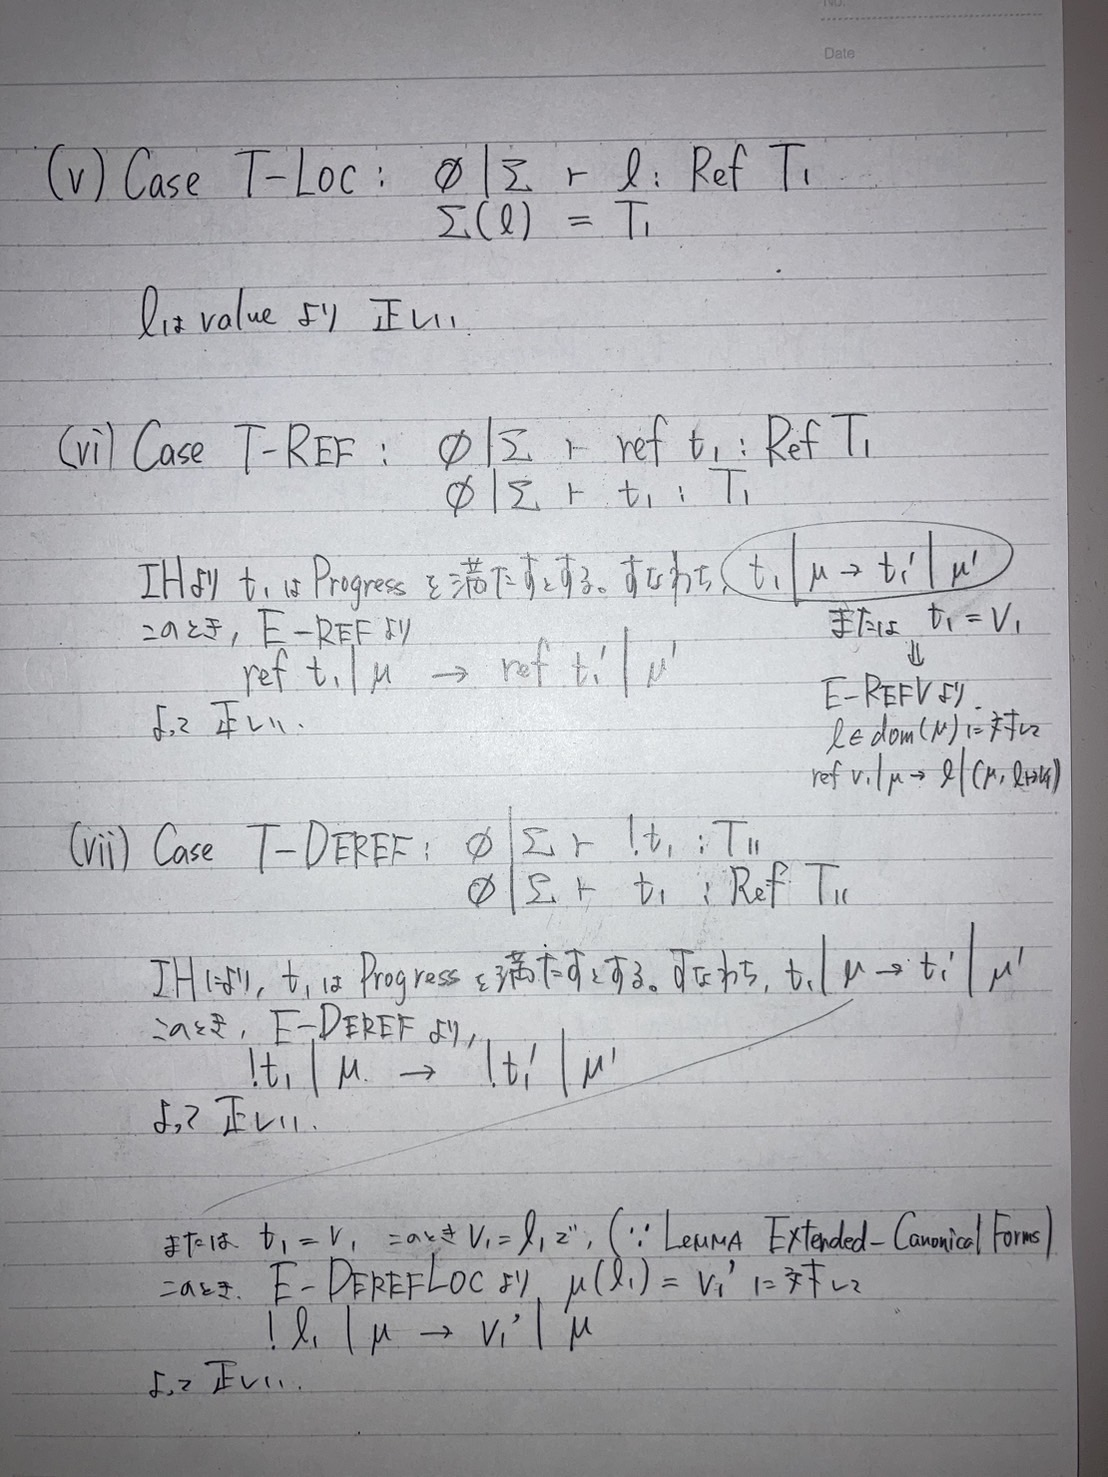 No.
Date
(v) Case T-LOC : ∅ | Σ ⊢ l : Ref T₁
Σ(l) = T₁
lは value より 正しい.
(vi) Case T-REF : ∅ | Σ ⊢ ref t₁ : Ref T₁
∅ | Σ ⊢ t₁ : T₁
IHより t₁は Progress を満たすとする。すなわち, t₁ | μ → t₁' | μ'
または t₁ = v₁
⇓
E-REFVより.
l ∈ dom(μ)に対して
ref v₁ | μ → l | (μ, l↦v₁)
このとき, E-REFより
ref t₁ | μ → ref t₁' | μ'
よって 正しい.
(vii) Case T-DEREF : ∅ | Σ ⊢ !t₁ : T₁₁
∅ | Σ ⊢ t₁ : Ref T₁₁
IHにより, t₁は Progress を満たすとする。すなわち, t₁ | μ → t₁' | μ'
このとき, E-DEREFより,
!t₁ | μ. → !t₁' | μ'
よって 正しい.
または t₁ = v₁ このとき v₁ = l₁で, (∵ LEMMA Extended-Canonical Forms)
このとき. E-DEREFLOCより, μ(l₁) = v₁' に対して
!l₁ | μ → v₁' | μ
よって 正しい.